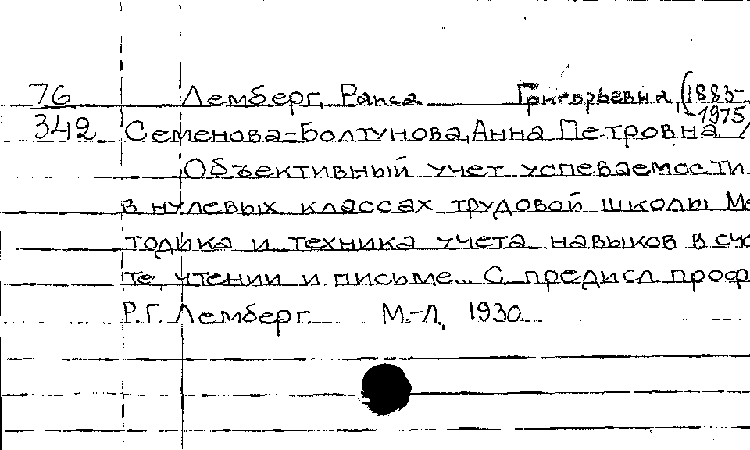 76 Лемберг, Раиса Григорьевна, (1883-
1975
342 Семенова-Болтунова, Анна Петровна
Объективный учет успеваемости
в нулевых классах трудовой школы Ме
тодика и техника учета навыков в сче
те, чтении и письме... С предисл проф
Р.Г. Лемберг. М.-Л, 1930